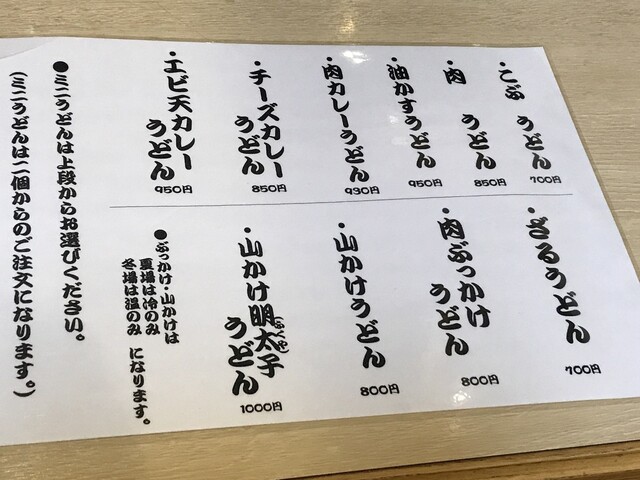 ・こぶうどん
700円
・肉うどん
850円
・油かすうどん
950円
・肉カレーうどん
930円
・チーズカレー
うどん
850円
・エビ天カレー
うどん
950円
・ざるうどん
700円
・肉ぶっかけ
うどん
800円
・山かけうどん
800円
・山かけ明太子
うどん
1000円
●ぶっかけ・山かけは
夏場は冷のみ
冬場は温のみ
になります。
●ミニうどんは上段からお選びください。
(ミニうどんは二個からのご注文になります。)